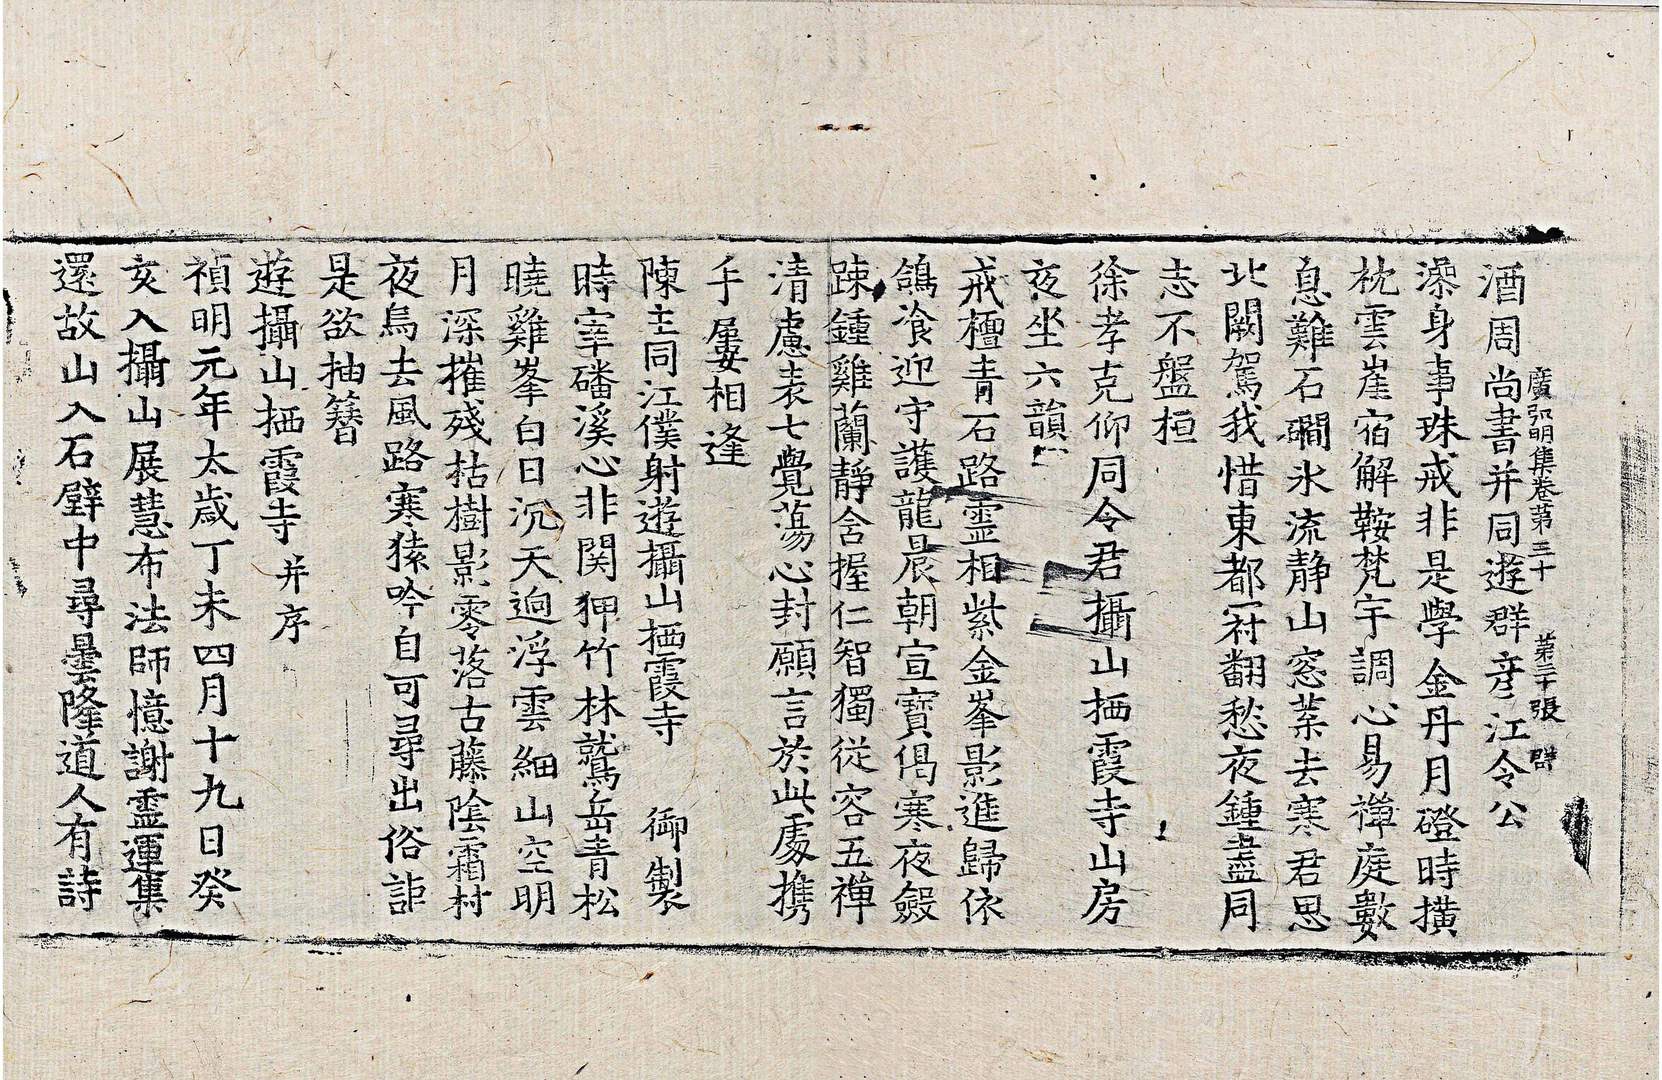 酒周尚書并同遊群彦江令公
廣弘明集卷第三十 第三十張 群
澡身事珠戒非是學金丹月磴時撗
枕雲崖宿解鞍梵宇調心易禪庭數
息難石磵氷流靜山窓葉去寒君思
北闕駕我惜東都冠翻愁夜鍾盡同
志不盤桓
徐孝克仰同令君攝山栖霞寺山房
夜坐六韻
戒檀青石路靈相紫金峯影進歸依
鴿飡迎守護龍晨朝宣寶偈寒夜斂
踈鍾雞蘭靜含握仁智獨從容五禪
清慮表七覺蕩心封願言於此處携
手屢相逢
陳主同江僕射遊攝山栖霞寺 御製
時宰磻溪心非関狎竹林鷲岳青松
曉雞峯白日沉天逈浮雲細山空明
月深摧殘枯樹影零落古藤陰霜村
夜烏去風路寒猿吟自可尋出俗詎
是欲抽簪
遊攝山栖霞寺 并序
禎明元年太歲丁未四月十九日癸
亥入攝山展慧布法師憶謝靈運集
還故山入石壁中尋曇隆道人有詩